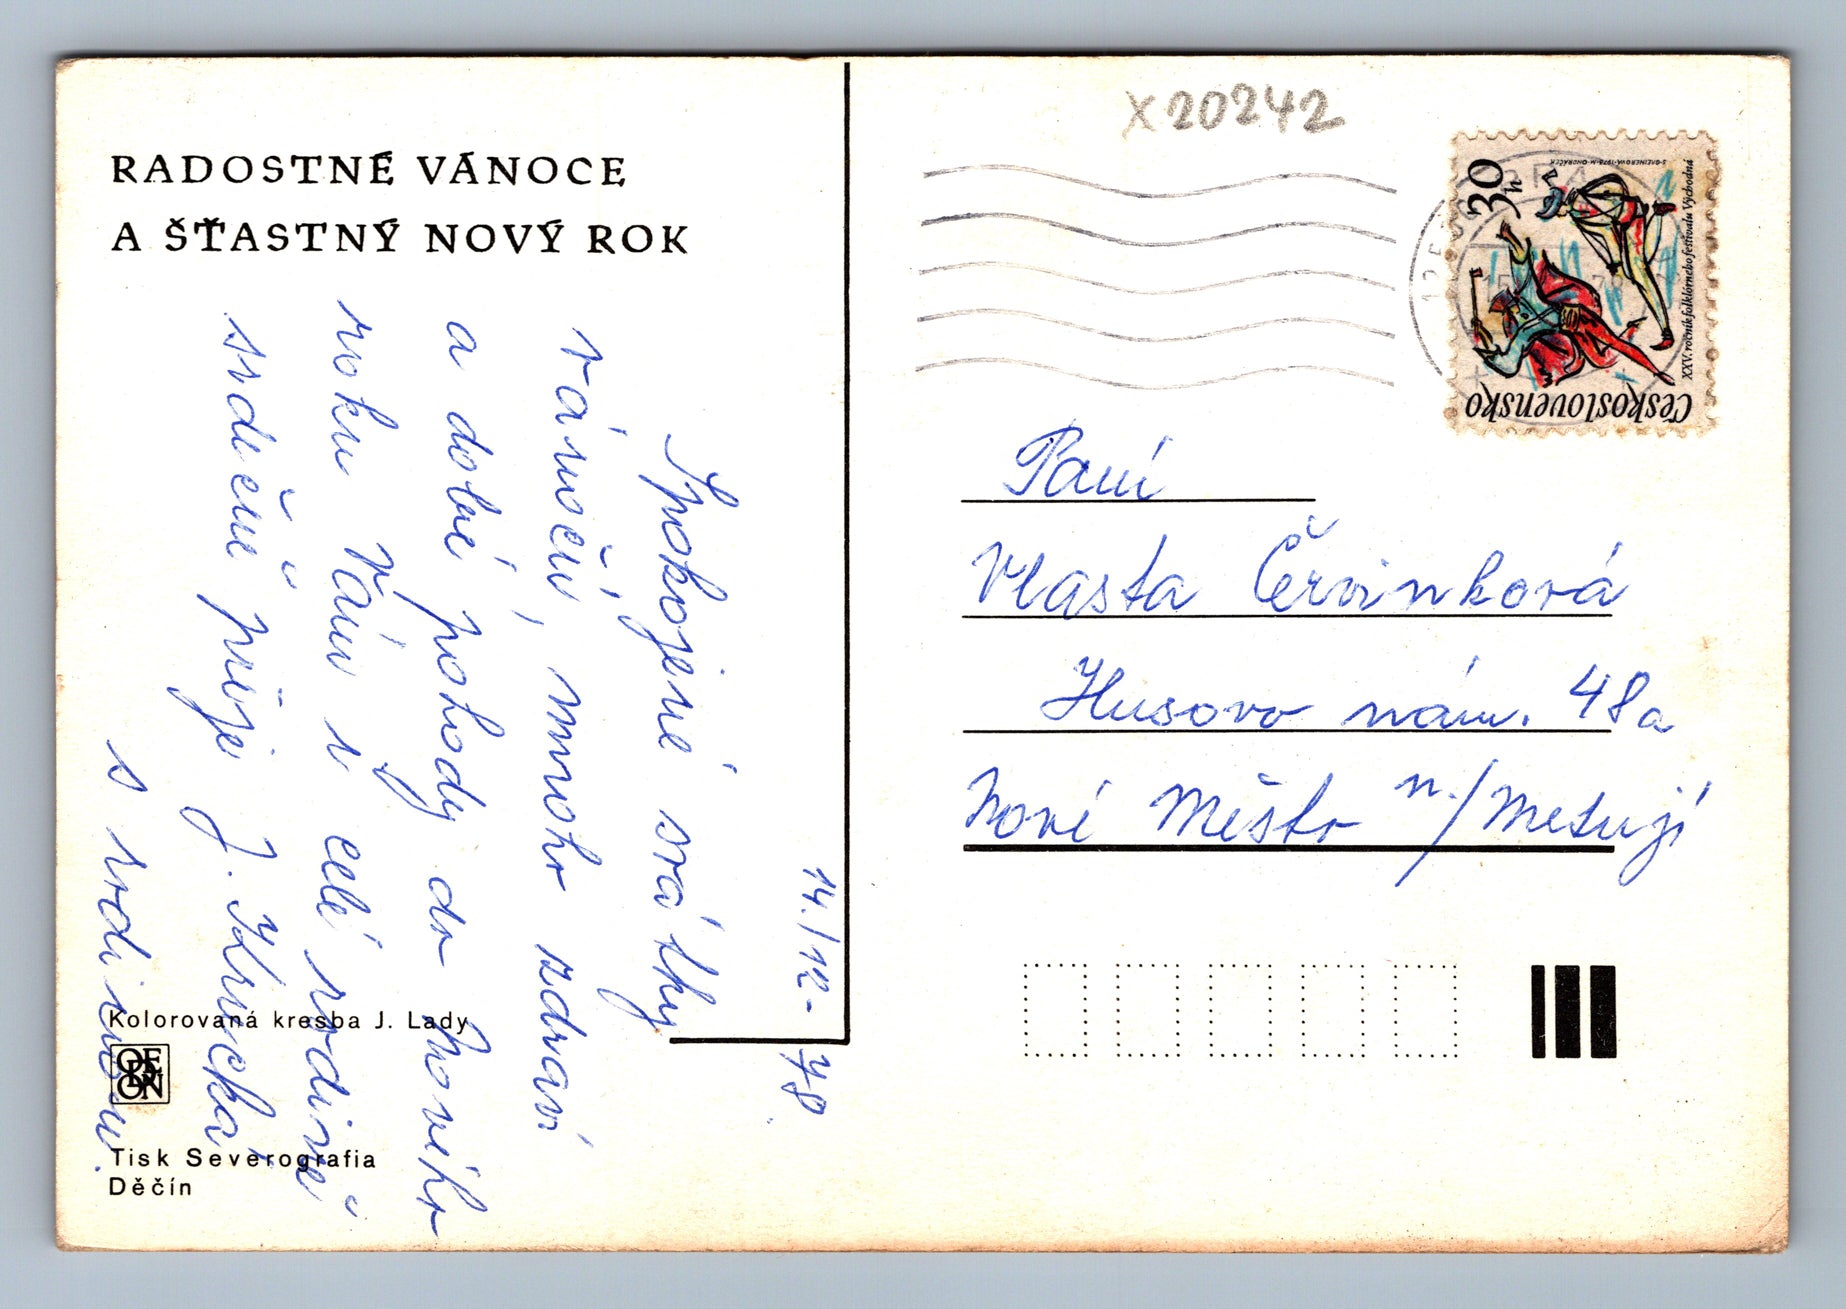 RADOSTNÉ VÁNOCE
A ŠŤASTNÝ NOVÝ ROK
14./12-78
Spokojené svátky
vánoční, mnoho zdraví
a dobré pohody do Nového
roku Vám i celé rodině
srdečně přeje J. Hrnčká
s rodinou.
Kolorovaná kresba J. Lady
ODEON
Tisk Severografia
Děčín
X20242
30h
Československo
XXV. ročník folklórneho festivalu Východná
S. GREINEROVÁ-1978-M. ONDRÁČEK
Paní
Vlasta Červinková
Husovo nám. 48a
Nové Město n./Metují